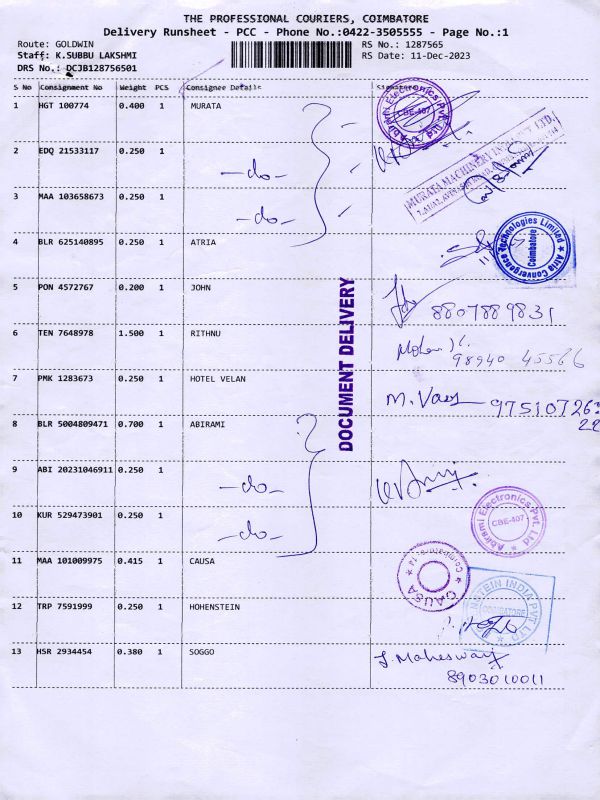 THE PROFESSIONAL COURIERS, COIMBATORE
Delivery Runsheet - PCC - Phone No.:0422-3505555 - Page No.:1
Route: GOLDWIN RS No.: 1287565
Staff: K.SUBBU LAKSHMI RS Date: 11-Dec-2023
DRS No.: DCJB128756501
S No Consignment No Weight PCS Consignee Details Signature
1 HGT 100774 0.400 1 MURATA
Abirami Electronics Pvt. Ltd CBE-407
MURATA MACHINERY INDIA PVT. LTD.,
2 EDQ 21533117 0.250 1 -do-
3 MAA 103658673 0.250 1 -do-
4 BLR 625140895 0.250 1 ATRIA
Atria Convergence Technologies Limited Coimbatore
5 PON 4572767 0.200 1 JOHN 8807889831
6 TEN 7648978 1.500 1 RITHNU 98940 45566
7 PMK 1283673 0.250 1 HOTEL VELAN
DOCUMENT DELIVERY
8 BLR 5004809471 0.700 1 ABIRAMI
9 ABI 20231046911 0.250 1 -do-
10 KUR 529473901 0.250 1 -do-
Abirami Electronics Pvt. Ltd CBE-407
11 MAA 101009975 0.415 1 CAUSA
CAUSA
12 TRP 7591999 0.250 1 HOHENSTEIN
INDIA PVT LTD COIMBATORE
13 HSR 2934454 0.380 1 SOGGO J. Maheswari
8903010011